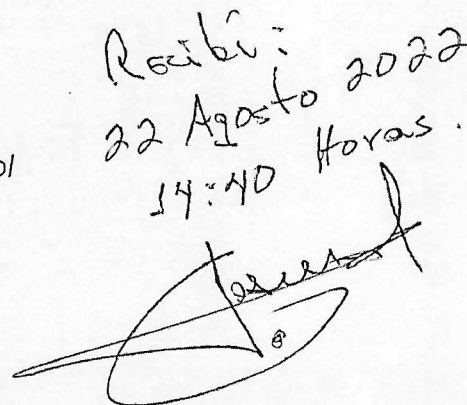 Recibí:
22 Agosto 2022
14:40 Horas.